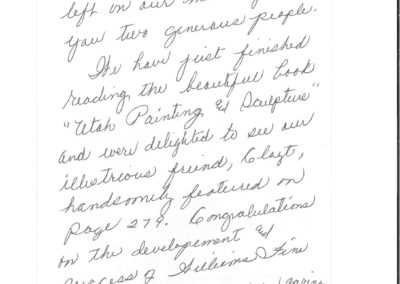 left on our
you two generous people.
We have just finished
reading the beautiful book
"Utah Painting & Sculpture"
and were delighted to see our
illustrious freind, Clayt,
handsomely featured on
Page 279. Congralulations
on the developement &
success of Williams Fine